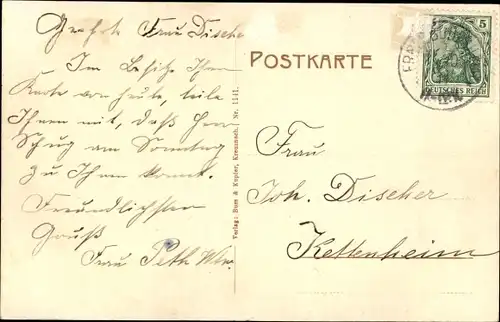 Geehrte Frau Discher
Im Besitze Ihrer
Karte von heute, teile
Ihnen mit, daß Herr
Schug am Sonntag
zu Ihnen kommt.
Freundlichsten
Gruß
Frau Peth Wtw.
Verlag: Buss & Kupfer, Kreuznach. Nr. 1141.
POSTKARTE
5
DEUTSCHES REICH
Frau
Joh. Discher
Kettenheim